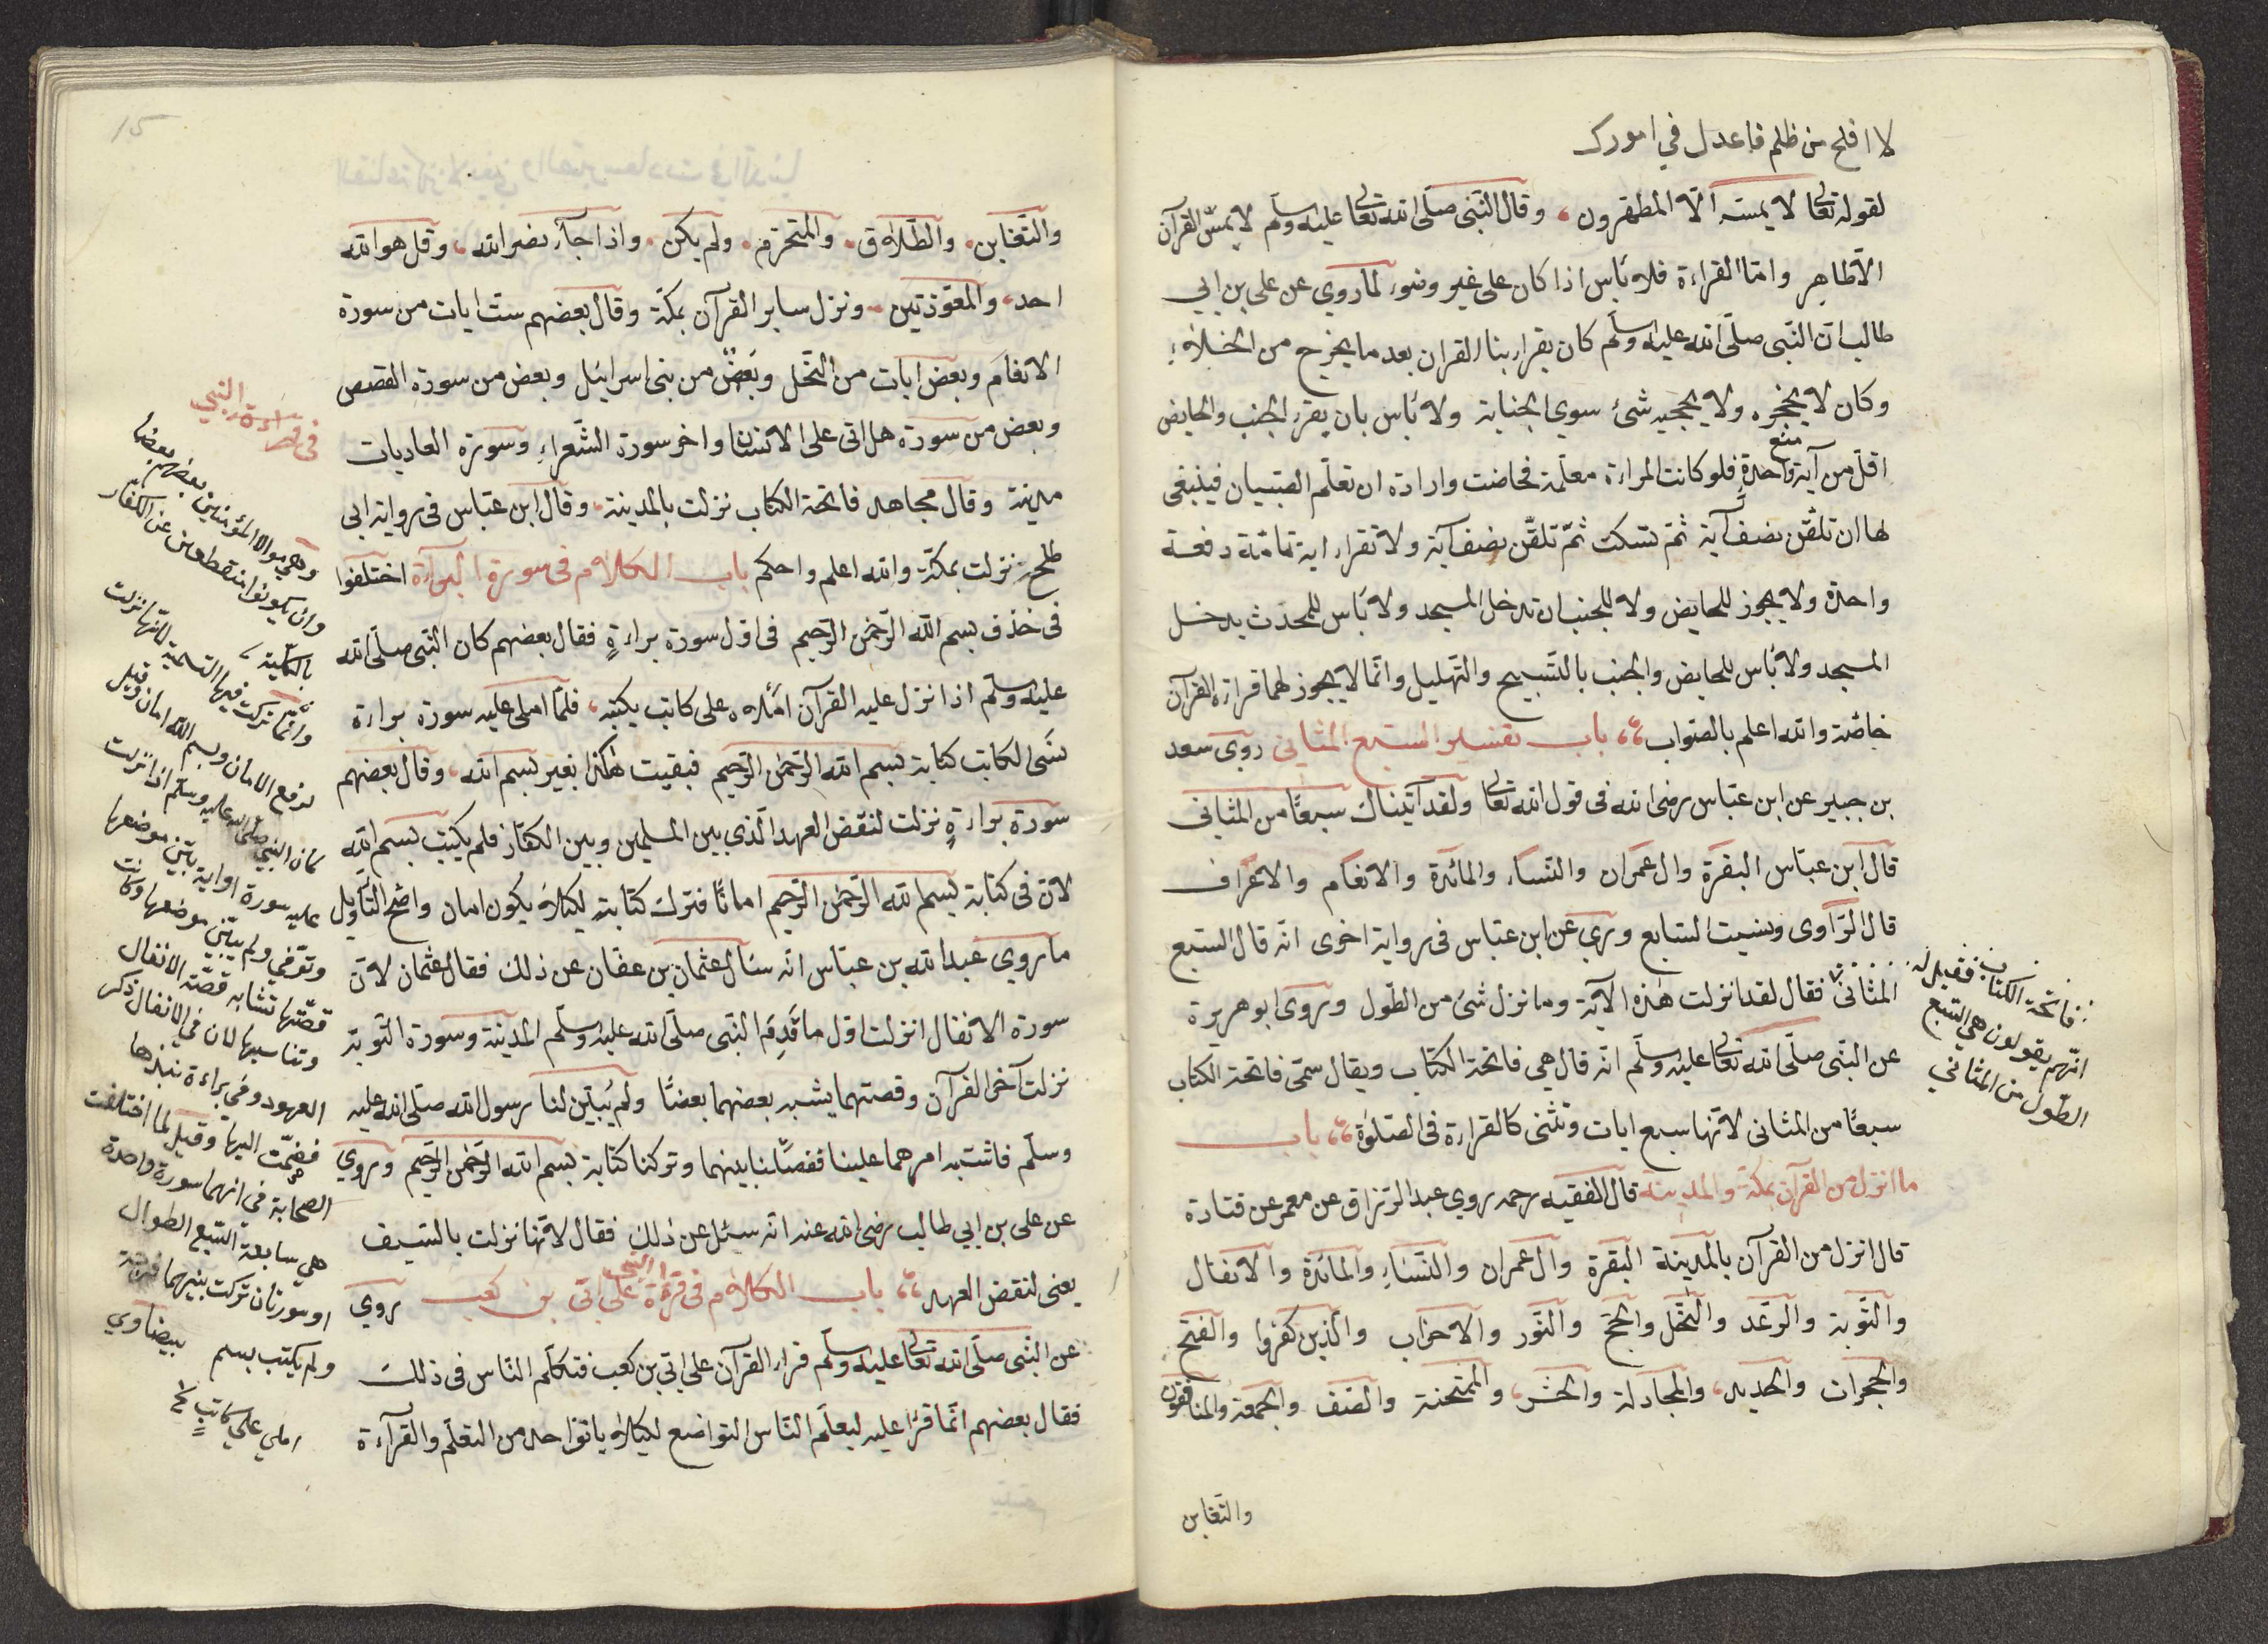 لا افلح من ظلم فاعدل في امورك
لقوله تعالى لا يمسّه الّا المطهّرون، وقال النّبى صلّى الله تعالى عليه وسلّم لا يمسّ القرآن
الّا طاهر وامّا القراءة فلا بأس اذا كان على غير وضوء لما روي عن على بن ابي
طالب انّ النّبى صلّى الله عليه وسلّم كان يقراء بنا القران بعد ما يخرج من الخلاء
وكان لا يحجزه ولا يحجبه شئ سوي الجنابة ولا بأس بان يقرء الجنب والحايض
اقلّ من آية واحدة فلو كانت المراءة معلّمة فحاضت وارادة ان تعلّم الصّبيان فينبغى
لها ان تلقّن نصف آية ثمّ تسكت ثمّ تلقّن نصف آية ولا تقراء اية تامّة دفعة
واحدة ولا يجوز للحايض ولا للجنب ان تدخل المسجد ولا بأس للمحدث يدخل
المسجد ولا بأس للحايض والجنب بالتّسبيح والتّهليل وانّما لا يجوز لهما قراءة القرآن
خاصّة والله اعلم بالصّواب باب تفسير السّبع المثاني روى سعد
بن جبير عن ابن عبّاس رضى الله فى قول الله تعالى ولقد آتيناك سبعًا من المثانى
قال ابن عبّاس البقرة وال عمران والنّساء والمائدة والانعام والاعراف
قال الرّاوى ونسيت السّابع وروي عن ابن عباس فى رواية اخرى انّه قال السّبع
المثانى فقال لقد نزلت هذه الآية وما نزل شئ من الطّول وروى ابو هريرة
عن النّبى صلّى الله تعالى عليه وسلّم انّه قال هي فاتحة الكتاب ويقال سمّى فاتحة الكتاب
سبعًا من المثانى لانّها سبع ايات وتثنى كالقراءة فى الصّلوة باب
ما انزل من القرآن بمكّة والمدينة قال الفقيه رحمه روي عبد الرّزاق عن معمر عن قتادة
قال انزل من القرآن بالمدينة البقرة وال عمران والنّساء والمائدة والانفال
والتّوبة والرّعد والنّحل والحجّ والنّور والاحزاب والّذين كفروا والفتح
والحجرات والحديد، والمجادلة والحشر، والممتحنة والصّف والجمعة والمنافقون
والتّغابن
فاتحة الكتاب فقيل له
انّهم يقولون هى السّبع
الطّول من المثاني
والتّغابن والطّلاق والمتحرّم ولم يكن واذا جآء نصر الله، وقل هو الله
احد، والمعوّذتين ونزل ساير القرآن بمكّة وقال بعضهم ستّ ايات من سورة
الانعام وبعض ايات من النّحل وبعضٌ من بنى اسرائيل وبعض من سورة القصص
وبعض من سورة هل اتى على الانسان واخر سورة الشّعراء وسورة العاديات
مدينة وقال مجاهد فاتحة الكتاب نزلت بالمدينة وقال ابن عبّاس فى رواية ابى
طلحة نزلت بمكّة والله اعلم واحكم باب الكلام فى سورة البرآءة اختلفوا
فى حذف بسم الله الرّحمن الرّحيم فى اول سورة براءةٍ فقال بعضهم كان النّبى صلّى الله
عليه وسلّم اذا نزل عليه القرآن املاه على كاتب يكتبه، فلمّا املى عليه سورة براءة
نسَى الكاتب كتابة بسم الله الرّحمن الرّحيم فبقيت هكذا بغير بسم الله، وقال بعضهم
سورة براءةٍ نزلت لنقض العهد الّذي بين المسلمين وبين الكفّار فلم يكتب بسم الله
لانّ فى كتابة بسم الله الرّحمن الرّحيم امانًا فترك كتابة لكيلا يكون امان واضح التّأويل
ما روي عبد الله بن عبّاس انّه سئال عثمان بن عفان عن ذلك فقال عثمان لانّ
سورة الانفال انزلت اول ما قَدِمَ النّبى صلّى الله عليه وسلّم المدينة وسورة التّوبة
نزلت آخر القرآن وقصتهما يشبه بعضهما بعضًا ولم يُبيّن لنا رسول الله صلّى الله عليه
وسلّم فاشتبه امرهما علينا ففصّلنا بينهما وتركنا كتابة بسم الله الرّحمن الرّحيم وروي
عن على بن ابي طالب رضى الله عنه انّه سئل عن ذلك فقال لانّها نزلت بالسّيف
يعنى لنقض العهد باب الكلام فى قرءة النّبى على ابّى بن كعب روي
عن النّبى صلّى الله تعالى عليه وسلّم قراء القرآن على ابّى بن كعب فتكلّم النّاس فى ذلك
فقال بعضهم انّما قرأ عليه ليعلّم النّاس التواضع لكيلا يانو احد من التعلّم والقرآءة
فى قراءة النبي
وهي موالاة المؤمنين بعضهم بعضا
وان يكونوا منقطعين عن الكفّار
بالكلّية
وانّما تركت فيها التسمية لانّها نزلت
لرفع الامان وبسم الله امان وقيل
كان النبي صلّى الله عليه وسلّم اذا نزلت
عليه سورة او اية بيّن موضعها
وتوفي ولم يبيّن موضعها وكانت
قصّتها تشابه قصّة الانفال
وتناسبها لان في الانفال ذكر
العهود وفي براءة نبذها
فضمّت اليها وقيل لما اختلفت
الصحابة فى انهما سورة واحدة
هي سابعة السّبع الطوال
او سورتان تركت بينهما فرجة
ولم يكتب بسم بيضاوي
املي علي كاتبٍ